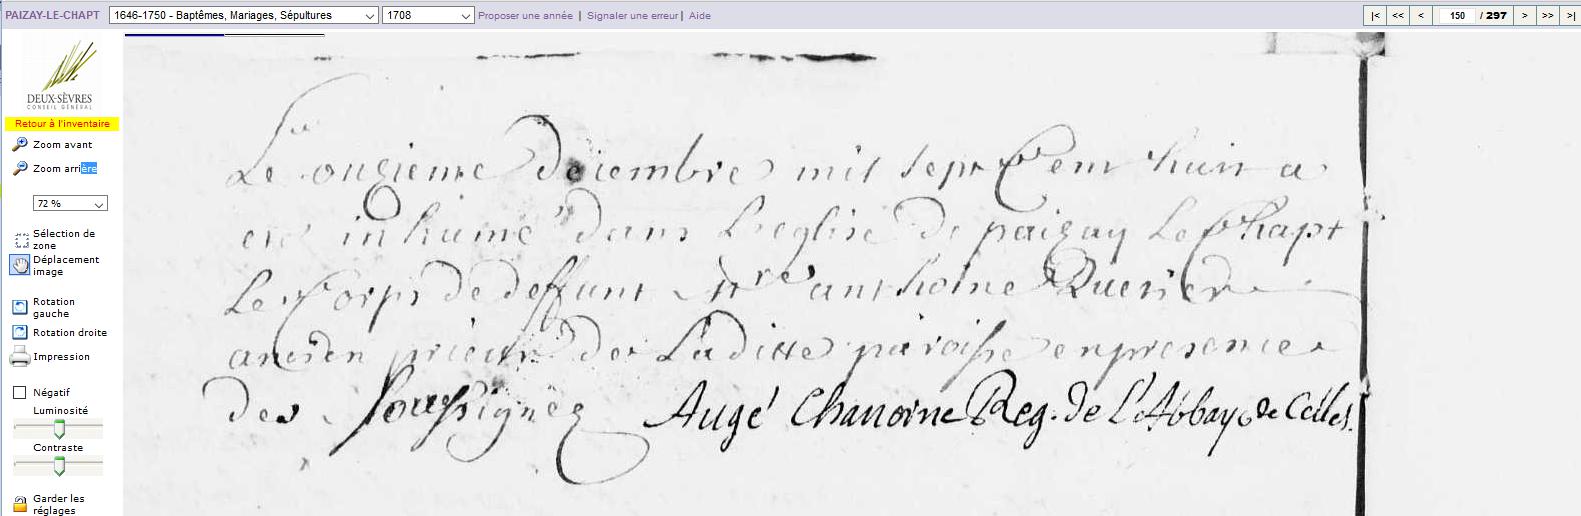 PAIZAY-LE-CHAPT 1646-1750 - Baptêmes, Mariages, Sépultures 1708 Proposer une année | Signaler une erreur | Aide |< << < 150 / 297 > >> >|
DEUX-SÈVRES
CONSEIL GÉNÉRAL
Retour à l'inventaire
Zoom avant
Zoom arrière
72 %
Sélection de
zone
Déplacement
image
Rotation
gauche
Rotation droite
Impression
Négatif
Luminosité
Contraste
Garder les
réglages
Le onzieme décembre mil sept Cent huit a
eté inhumé dans L'eglise de paizay Le Chapt
Le Corps de deffunt anthoine
ancien prieur de Laditte paroisse en presence
des soussignez Augé Chanoine Reg. de L'Abbaye de Celles.